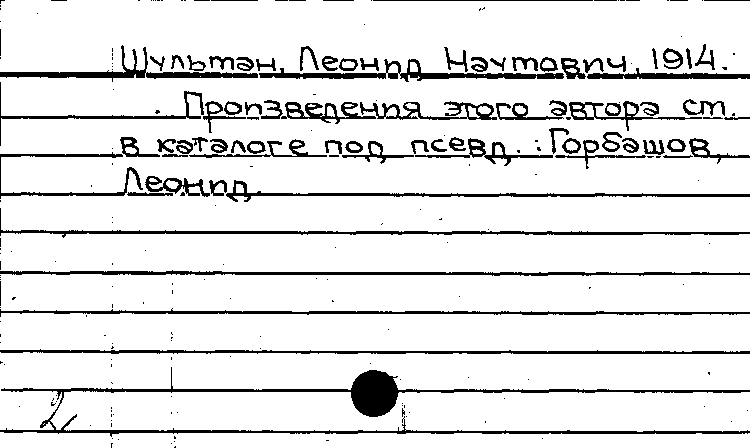 Шульман, Леонид Наумович, 1914.
Произведения этого автора см.
в каталоге под псевд.: Горбашов,
Леонид.
2